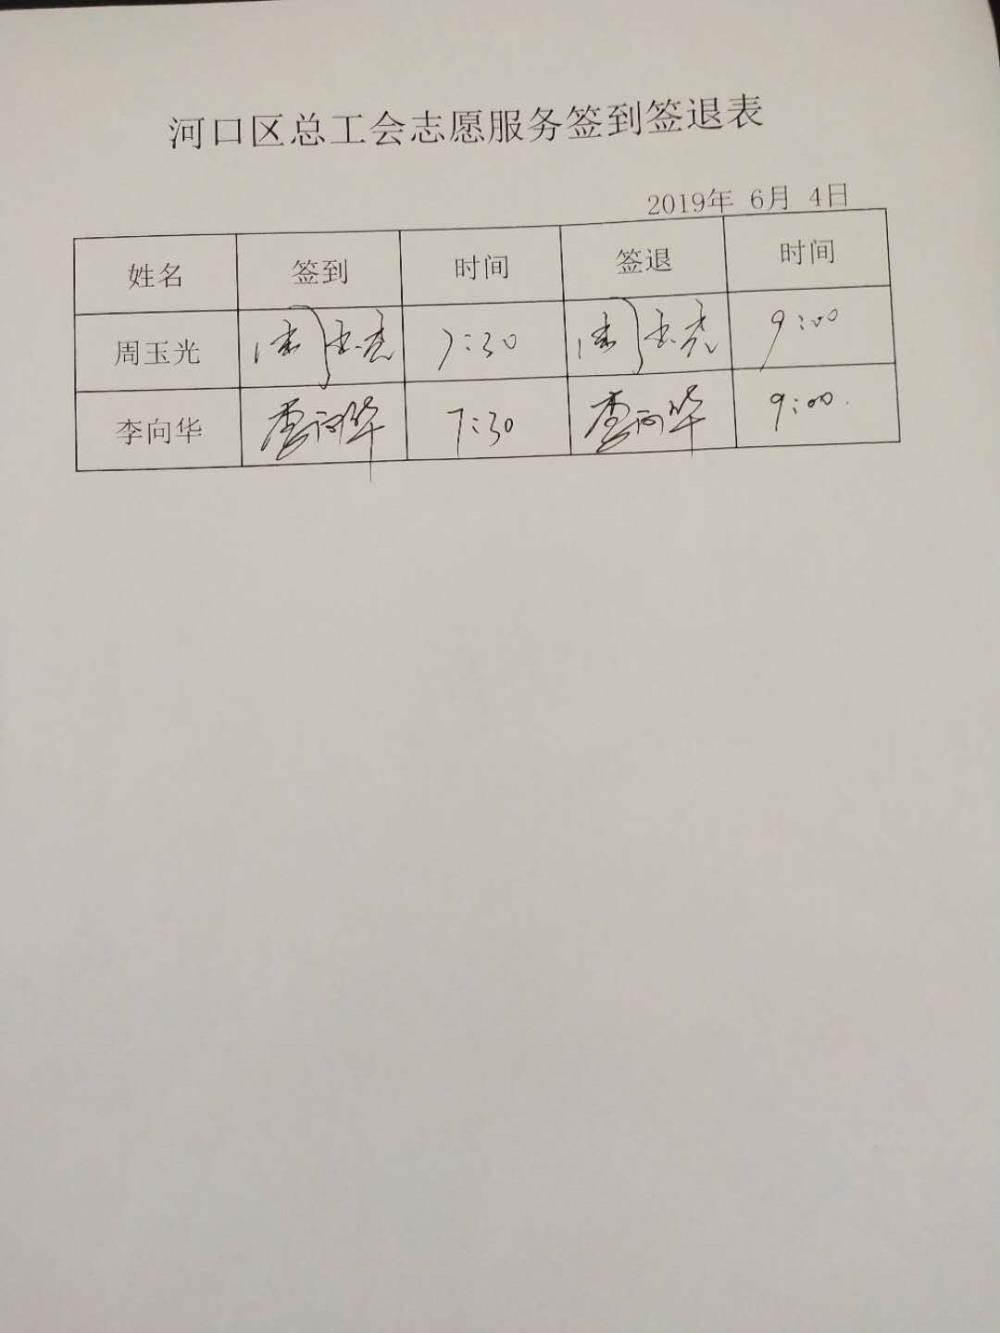 河口区总工会志愿服务签到签退表
2019年 6月 4日
姓名 签到 时间 签退 时间
周玉光 周玉光 7:30 周玉光 9:00
李向华 李向华 7:30 李向华 9:00